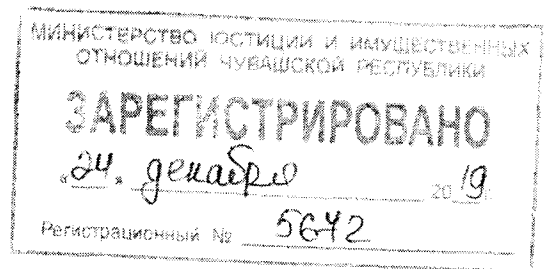 МИНИСТЕРСТВО ЮСТИЦИИ И ИМУЩЕСТВЕННЫХ
ОТНОШЕНИЙ ЧУВАШСКОЙ РЕСПУБЛИКИ
ЗАРЕГИСТРИРОВАНО
«24» декабря 2019 г.
Регистрационный № 5642